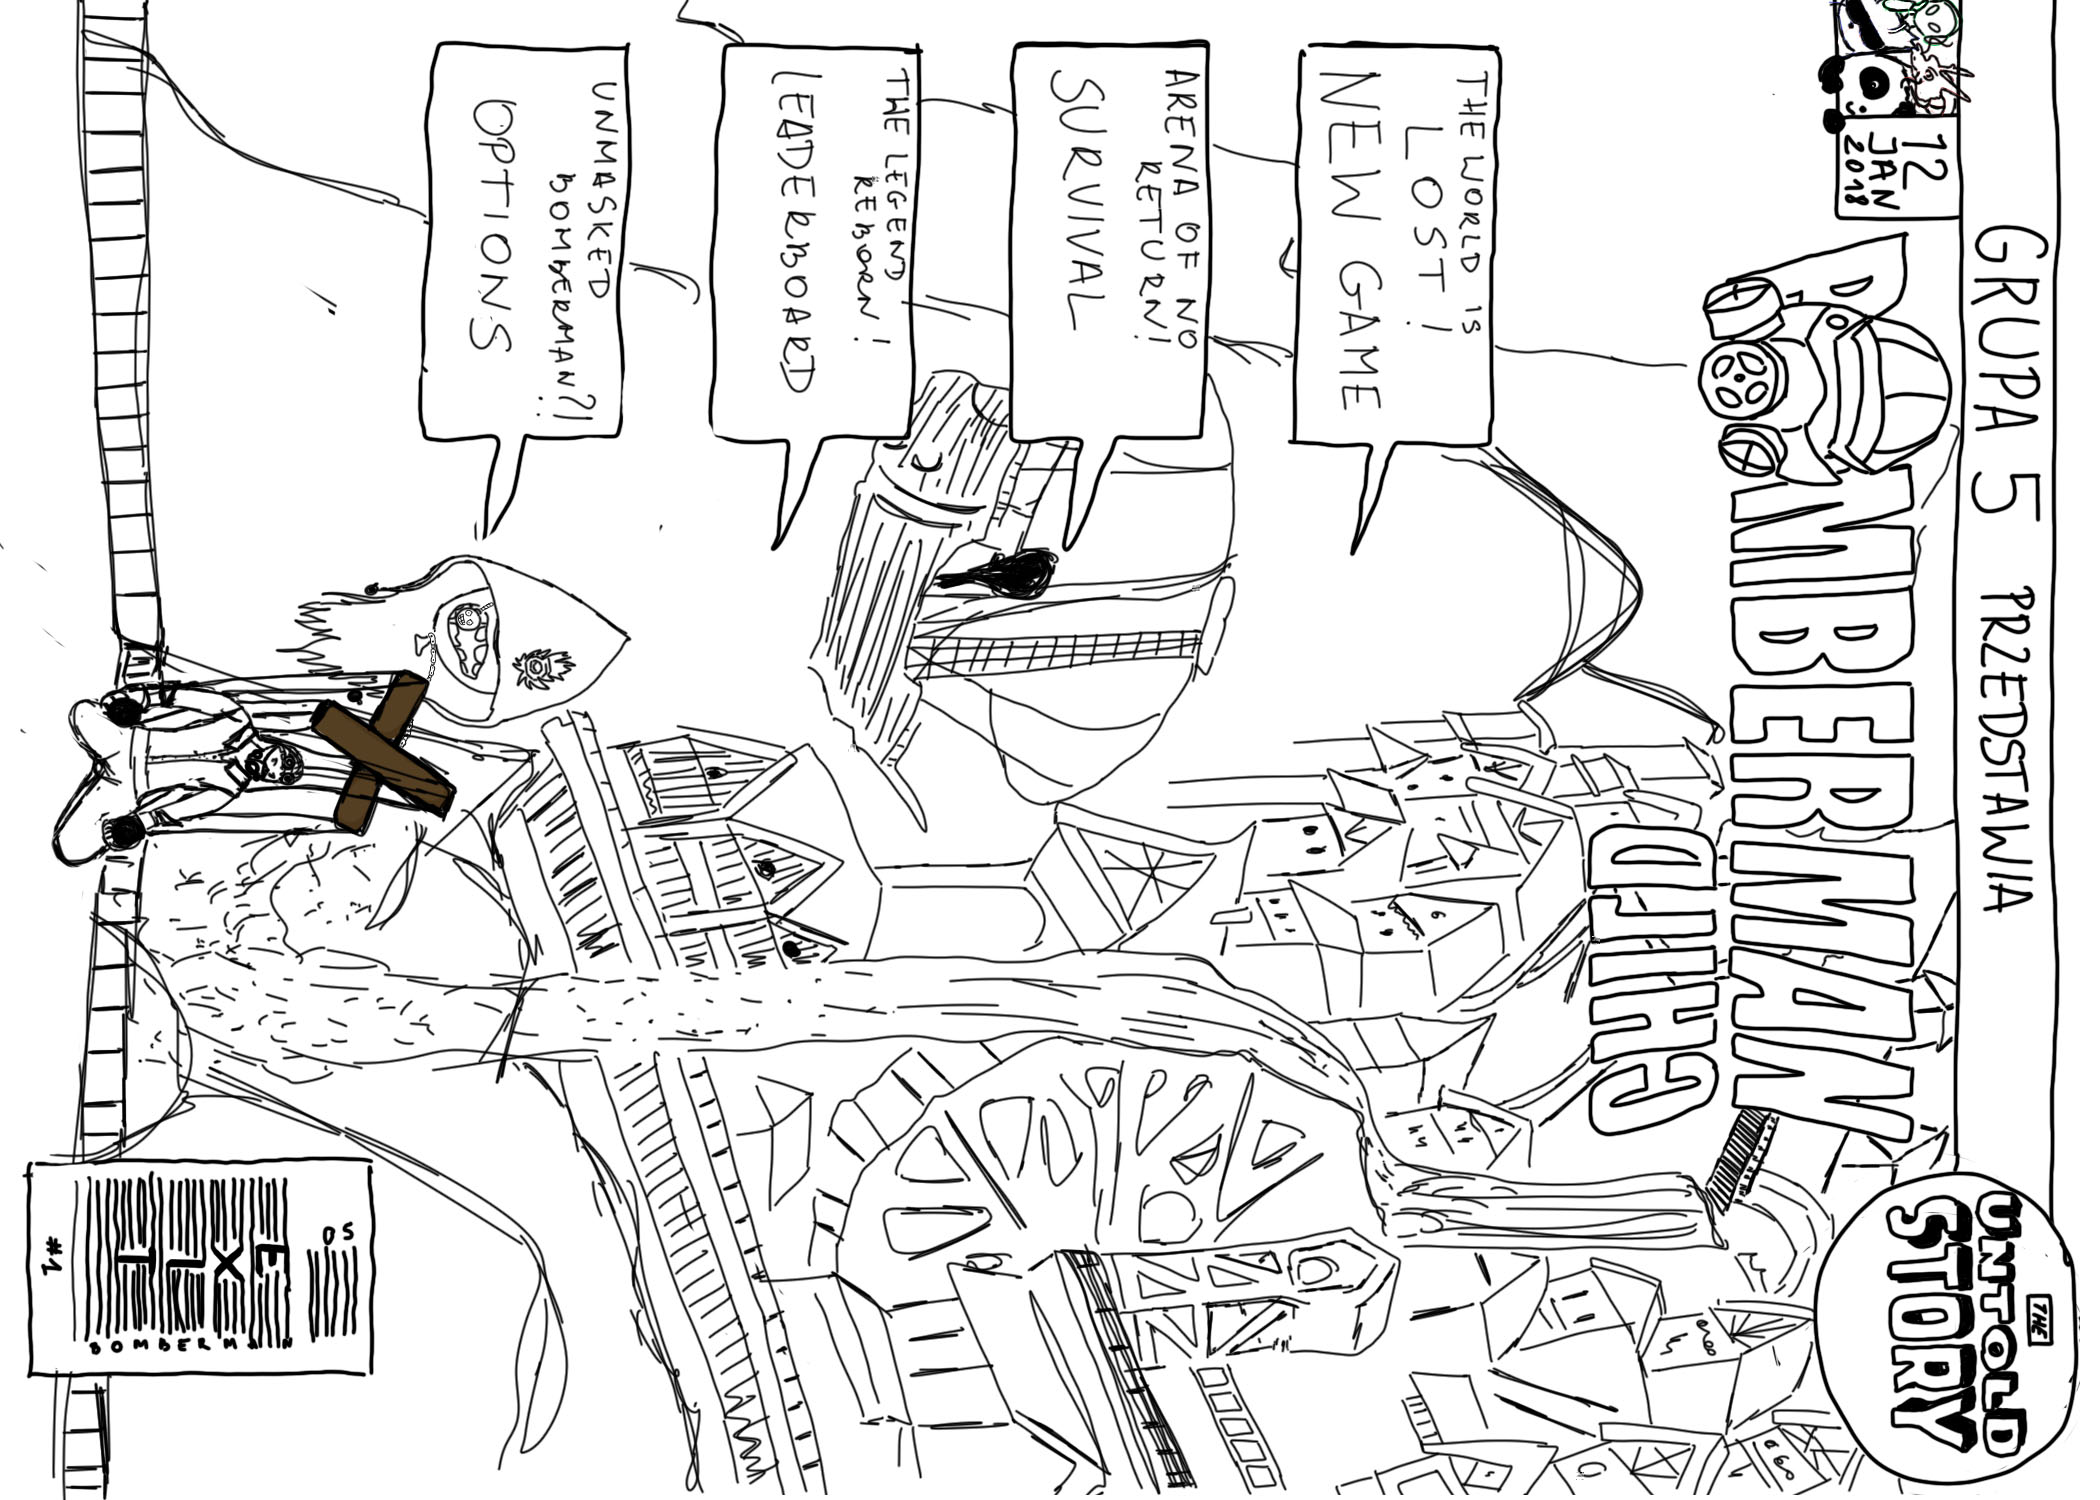 GRUPA 5 PRZEDSTAWIA
THE
UNTOLD
STORY
12
JAN
2018
BOMBERMAN
CHILD
THE WORLD IS
LOST!
NEW GAME
ARENA OF NO
RETURN!
SURVIVAL
THE LEGEND
REBORN!
LEADERBOARD
UNMASKED
BOMBERMAN?!
OPTIONS
05
EXIT
BOMBERMAN
#1